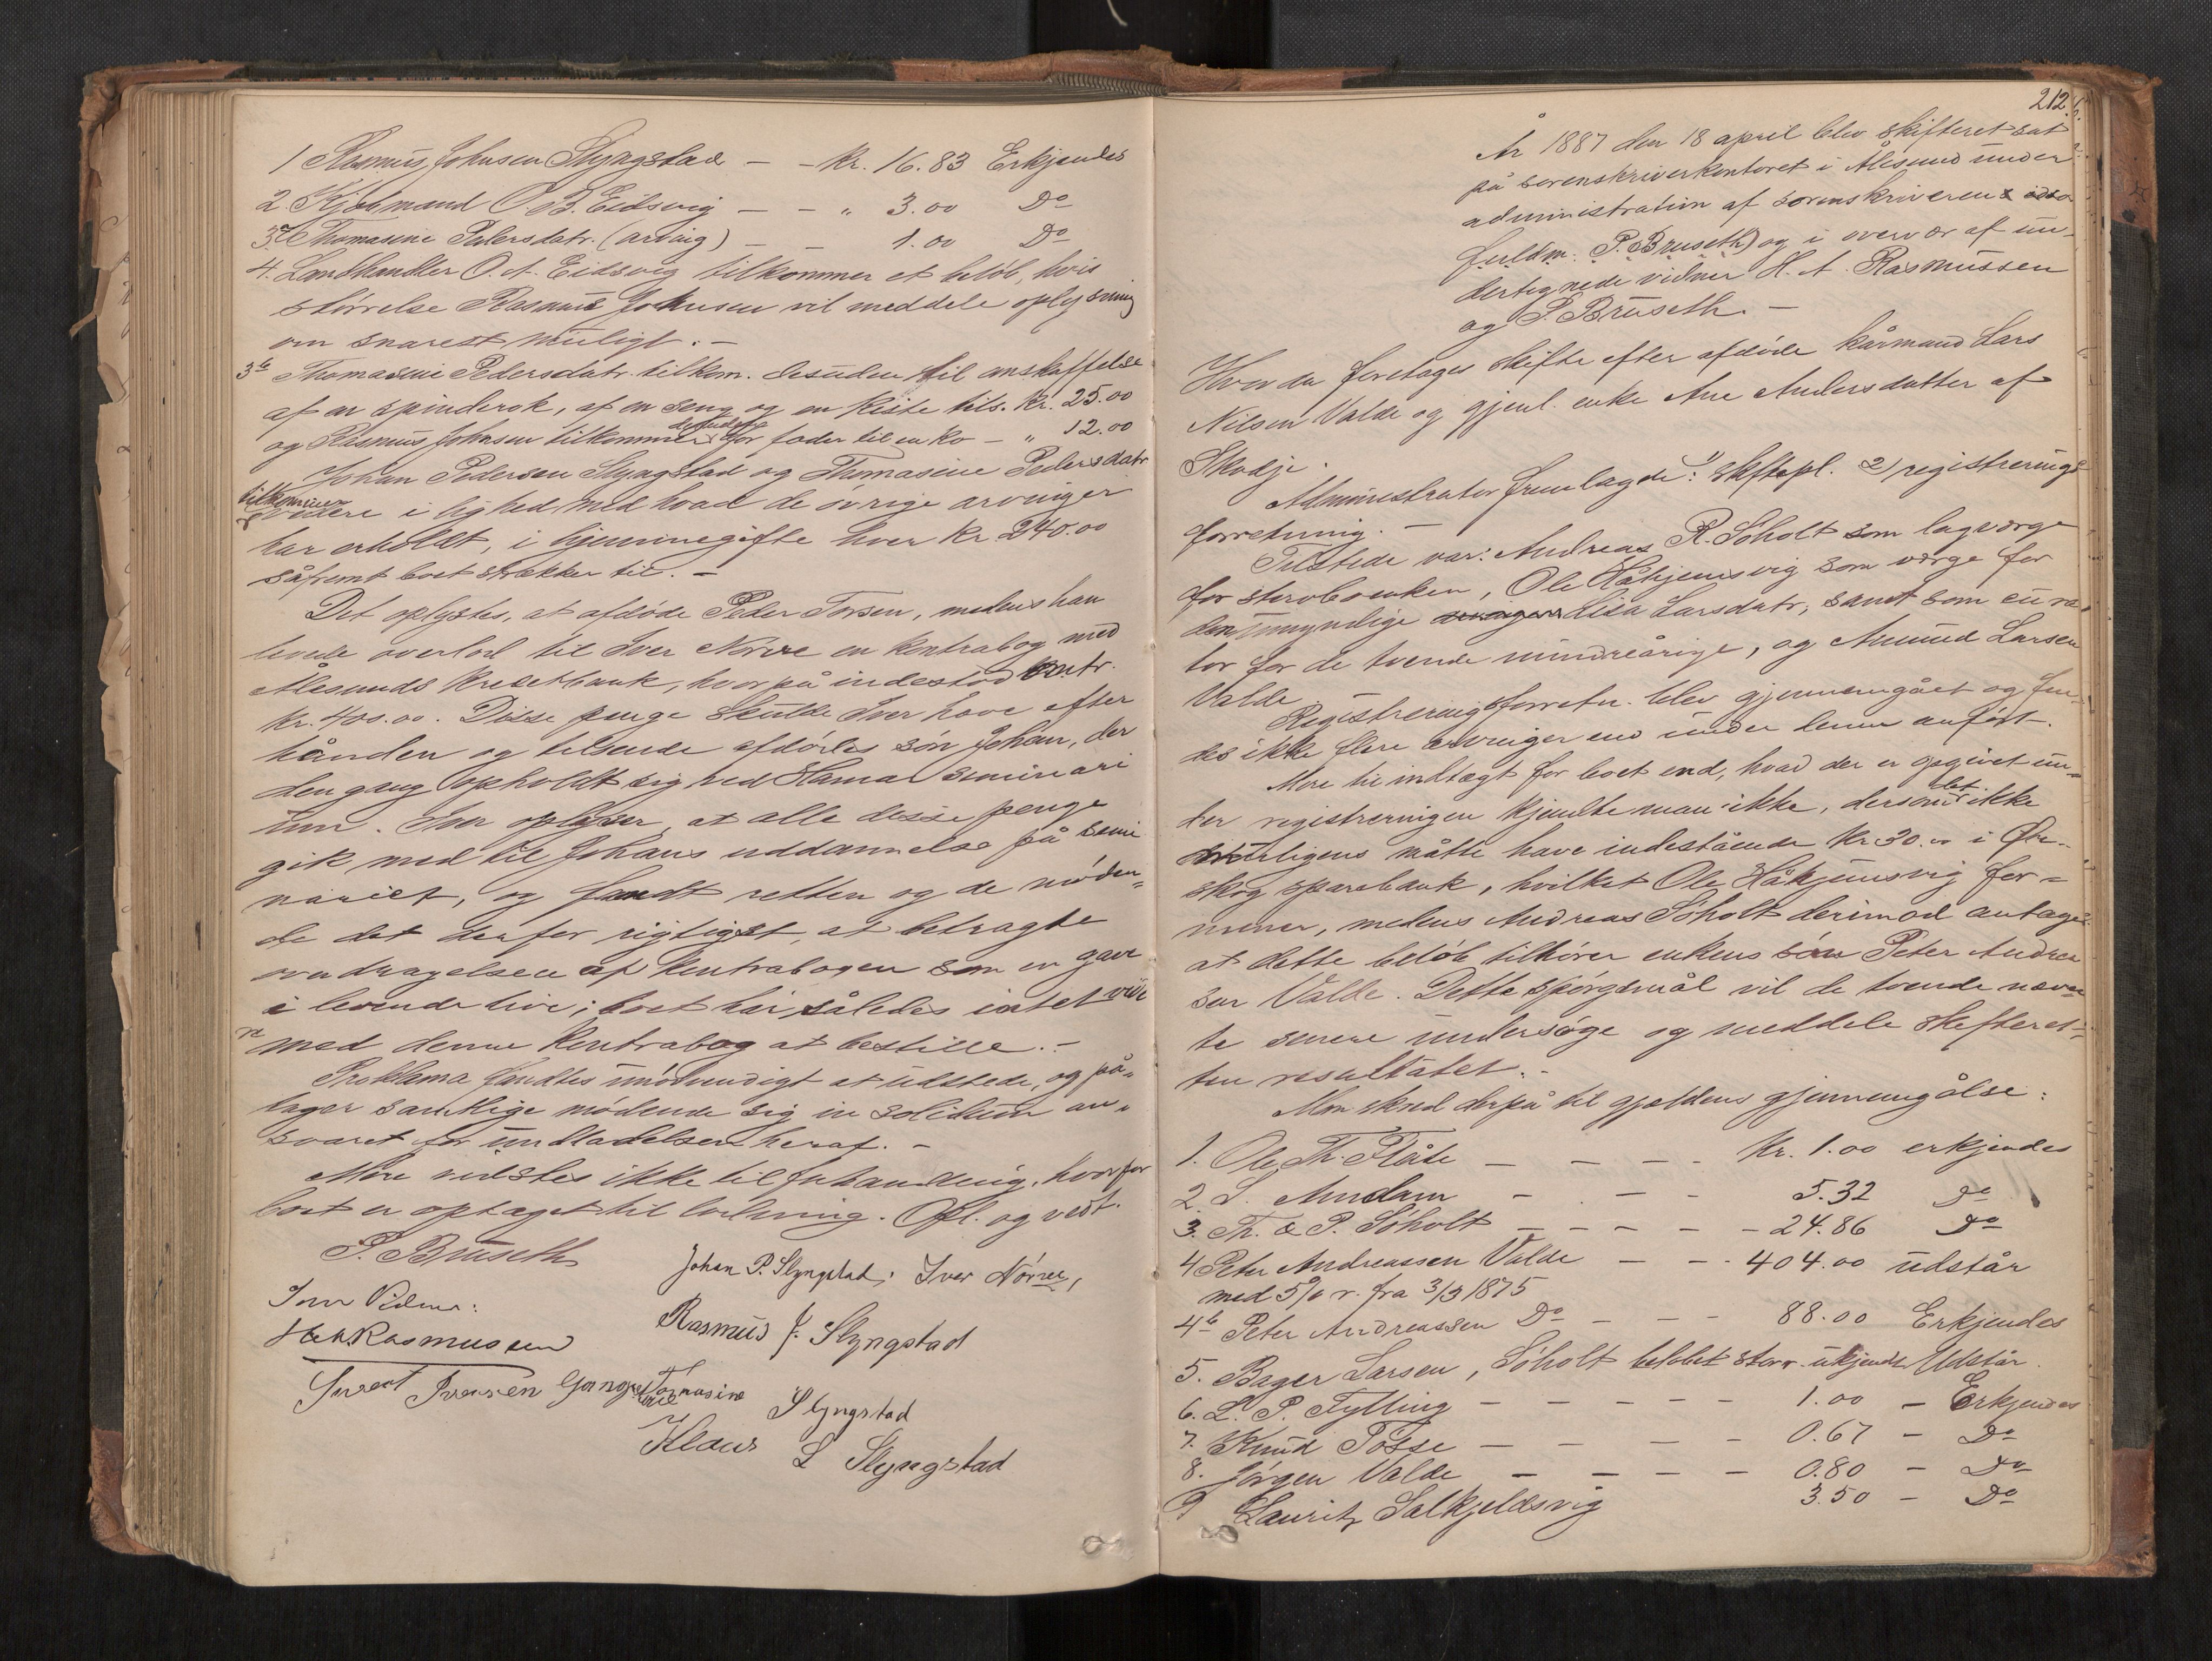 1 Rasmus Johnsen Slyngstad — - Kr. 16.83 Erkjendes
2. Kjøbmand O. B. Eidsvig — - „ 3.00 Do
3.a Thomasine Pedersdatr. (arving) — - 1.00 Do
4. Landhandler O. A. Eidsvig tilkommer et beløb, hvis
størrelse Rasmus Johnsen vil meddele oplysning
om snarest muligt. -
3b Thomasine Pedersdatr. tilkom. desuden til anskaffelse
af en spinderok, af en seng og en kiste tils. Kr. 25.00
og Rasmus Johnsen tilkommer desuden for foder til en ko - „ 12.00
Johan Pedersen Slyngstad og Thomasine Pedersdatr
tilkommer
videre i lighed med hvad de øvrige arvinger
har erholdt, i hjemmegifte hver Kr 240.00
såfremt boet strækker til. -
Det oplystes, at afdøde Peder Iversen, medens han
levede overlod til Iver Nørve en kontrabog med
Ålesunds Kreditbank, hvorpå indestod
Kr. 400.00. Disse penge skulde Iver hæve efter
hånden og tilsende afdødes søn Johan, der
dengang opholdt sig ved Hamar seminari
um. Iver oplyser, at alle disse penge
gik med til Johans uddannelse på semi
nariet, og fandt retten og de møden-
de det derfor rigtigst, at betragte
ovdragelsen af kontrabogen som en gave
i levende live; boet har således intet vide
re med denne kontrabog at bestille. -
Proklama fandtes unødvendigt at udstede, og på-
tager samtlige mødende sig in solidum an-
svaret for undladelsen heraf. -
Mere vidstes ikke til forhandling, hvorfor
boet er optaget til lodning. Opl. og vedt.
P. Bruseth
Johan P. Slyngstad, Iver Nørve,
Som Vidner:
Rasmus J. Slyngstad
H A Rasmussen
Sivert Iversen Gangstad
Tomasine Slyngstad
Klaus L Slyngstad
212.
År 1887 den 18 april blev skifteret sat
på sorenskriverkontoret i Ålesund under
administration af sorenskriverens
fuldm. P. Bruseth) og i overvær af un-
dertegnede vidner H. A. Rasmussen
og P. Bruseth. -
Hvorda foretages skifte efter afdøde kårmand Lars
Nilsen Valde og gjenl. enke Ane Andersdatter af
Skodje.
Administrator fremlagde: 1) skiftepl. 2) registrerings
forretning. -
Tilstede var: Andreas R. Søholt som lagværge
for stervboenken, Ole Håkjemsvig som værge for
den umyndige Lisa Larsdatr, samt som cura
tor for de tvende mindreårige, og Amund Larsen
Valde
Registreringsforretn. blev gjennemgået og fan-
des ikke flere arvinger end under denne anført.
Mere til indtægt for boet end, hvad der er opgivet un-
der registreringen kjendte man ikke, dersom det ikke
muligens måtte have indestående Kr. 30.00 i Ør-
skog sparebank, hvilket Ole Håkjemsvig for-
mener, medens Andreas Søholt derimod antager
at dette beløb tilhører enkens søn Peter Andrea
sen Valde. Dette spørgsmål vil de tvende nævn
te senere undersøge og meddele skifteret-
ten resultatet. -
Man skred derpå til gjældens gjennemgåelse:
1. Ole Th. Flåte — — — - Kr. 1.00 erkjendes
2. S. Amdam - - - 5.32 do
3. Th. & P. Søholt - - - - - 24.86 Do
4 Peter Andreassen Valde — - 404.00 udstår
med 5% r. fra 3/3 1875
4b Peter Andreassen Do — — - 88.00 Erkjendes
5. Bager Larsen, Søholt beløbet størr. ukjendt Udstår.
6. L. P. Fylling - - - - - 1.00 - Erkjendes
7. Knud Tøsse — — — - 0.67 - Do
8. Jørgen Valde — — — - 0.80 - Do
9 Lauritz Salkjeldsvig 3.50 - Do